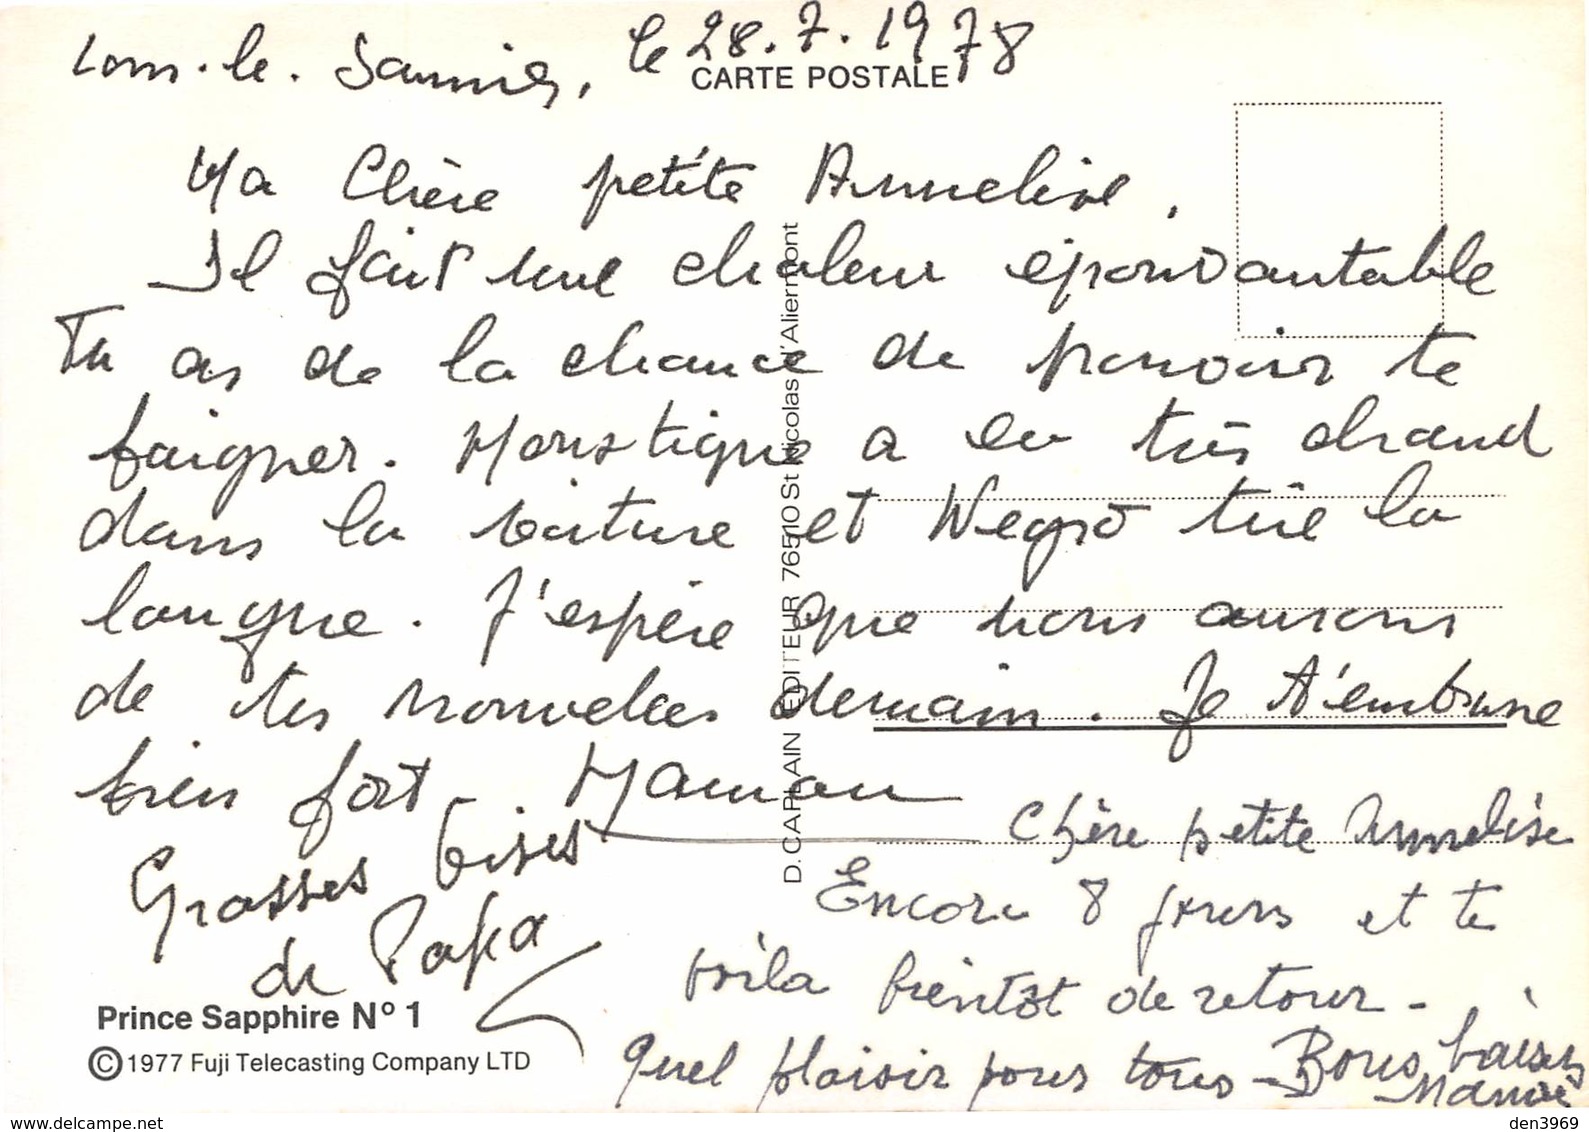 Lons-le-Saunier, le 28.7.1978
CARTE POSTALE
Ma Chère petite Annelise,
Il fait une chaleur épouvantable
Tu as de la chance de pouvoir te
baigner. Moustique a eu très chaud
dans la voiture et Negro tire la
langue. J'espère que nous aurons
de tes nouvelles demain. Je t'embrasse
bien fort. Maman
Grosses bises
de Papa
Chère petite Annelise
Encore 8 jours et te
voila bientôt de retour -
Quel plaisir pour tous - Bons baisers
D. CAPLAIN EDITEUR 76510 St Nicolas d'Aliermont
Prince Sapphire N° 1
© 1977 Fuji Telecasting Company LTD
www.delcampe.net
den3969